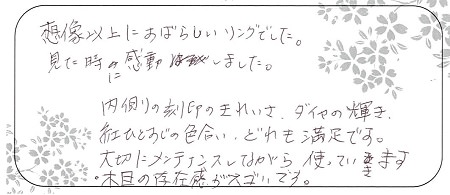 想像以上にすばらしいリングでした。
見た時に感動しました。
内側の刻印のきれいさ、ダイヤの輝き、
紅ひとすじの色合い、どれも満足です。
大切にメンテナンスしながら使っていきます
・木目の存在感がスゴイです。